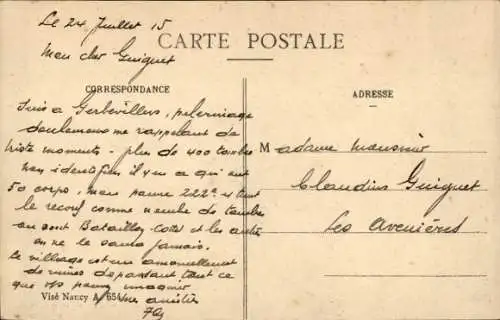 Le 24 Juillet 15
CARTE POSTALE
Mon cher Guiguet
CORRESPONDANCE
ADRESSE
Suis a Gerbeviller, pelerinage
me rappelant de
triste moments - plus de 400 tombes
non identifiés il y en a qui ont
50 corps, mon pauvre 222e
le record comme nombre de tombes
ou sont Bataillon et les autres
on ne le saura jamais.
Le village est un amoncellement
de ruines depassant tout ce
que pouvez imaginer
Visé Nancy A/654
M adame monsieur
Claudius Guiguet
Les Avenières